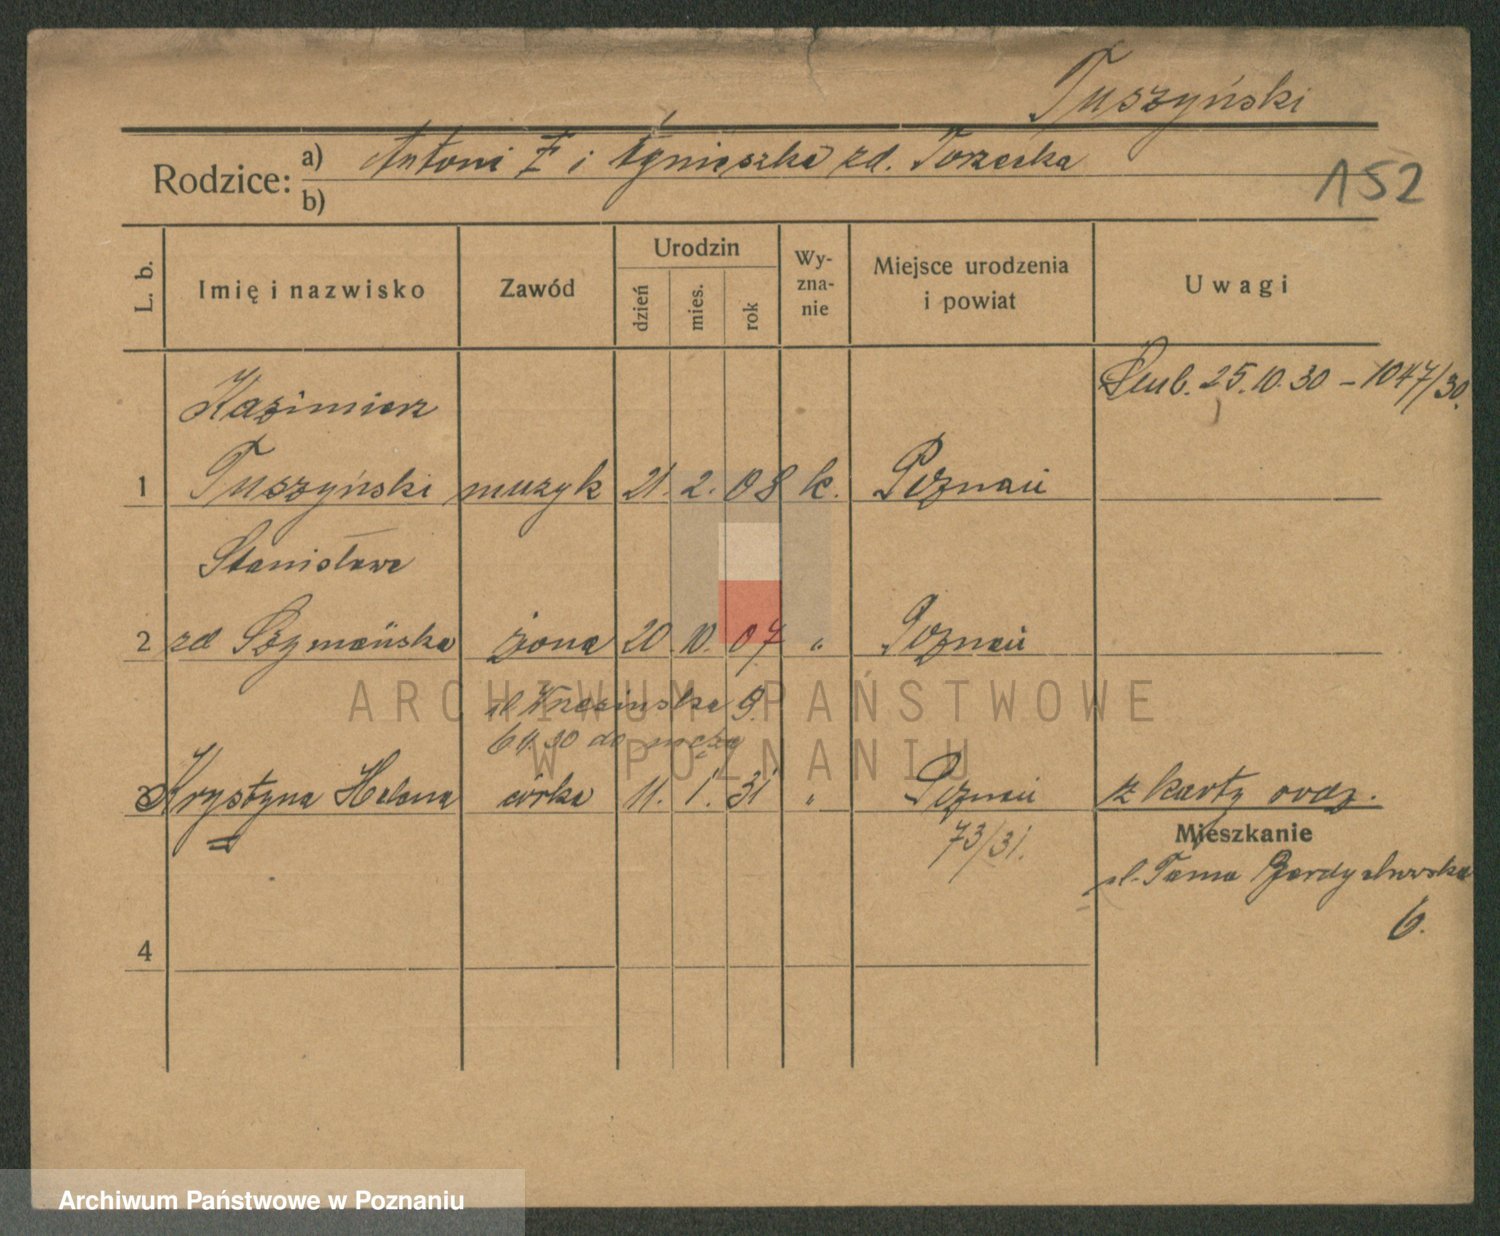 Tuszyński
Rodzice: a) Antoni T i Agnieszka zd. Torzecka
b)
152
L. b. Imię i nazwisko Zawód Urodzin dzień mies. rok Wy-zna-nie Miejsce urodzenia i powiat Uwagi
Ślub. 25.10.30 – 1047/30.
Kazimierz
1 Tuszyński muzyk 21. 2. 08 k. Poznań
Stanisława
2 zd Szymańska żona 20. 10. 07 " Poznań
ul. Wrzesińska 9.
do męża
3 Krystyna Helena córka 11. 1. 31 " Poznań z karty rodz.
73/31.
Mieszkanie
ul. Tama Garbarska
6.
4
ARCHIWUM PAŃSTWOWE
W POZNANIU
Archiwum Państwowe w Poznaniu